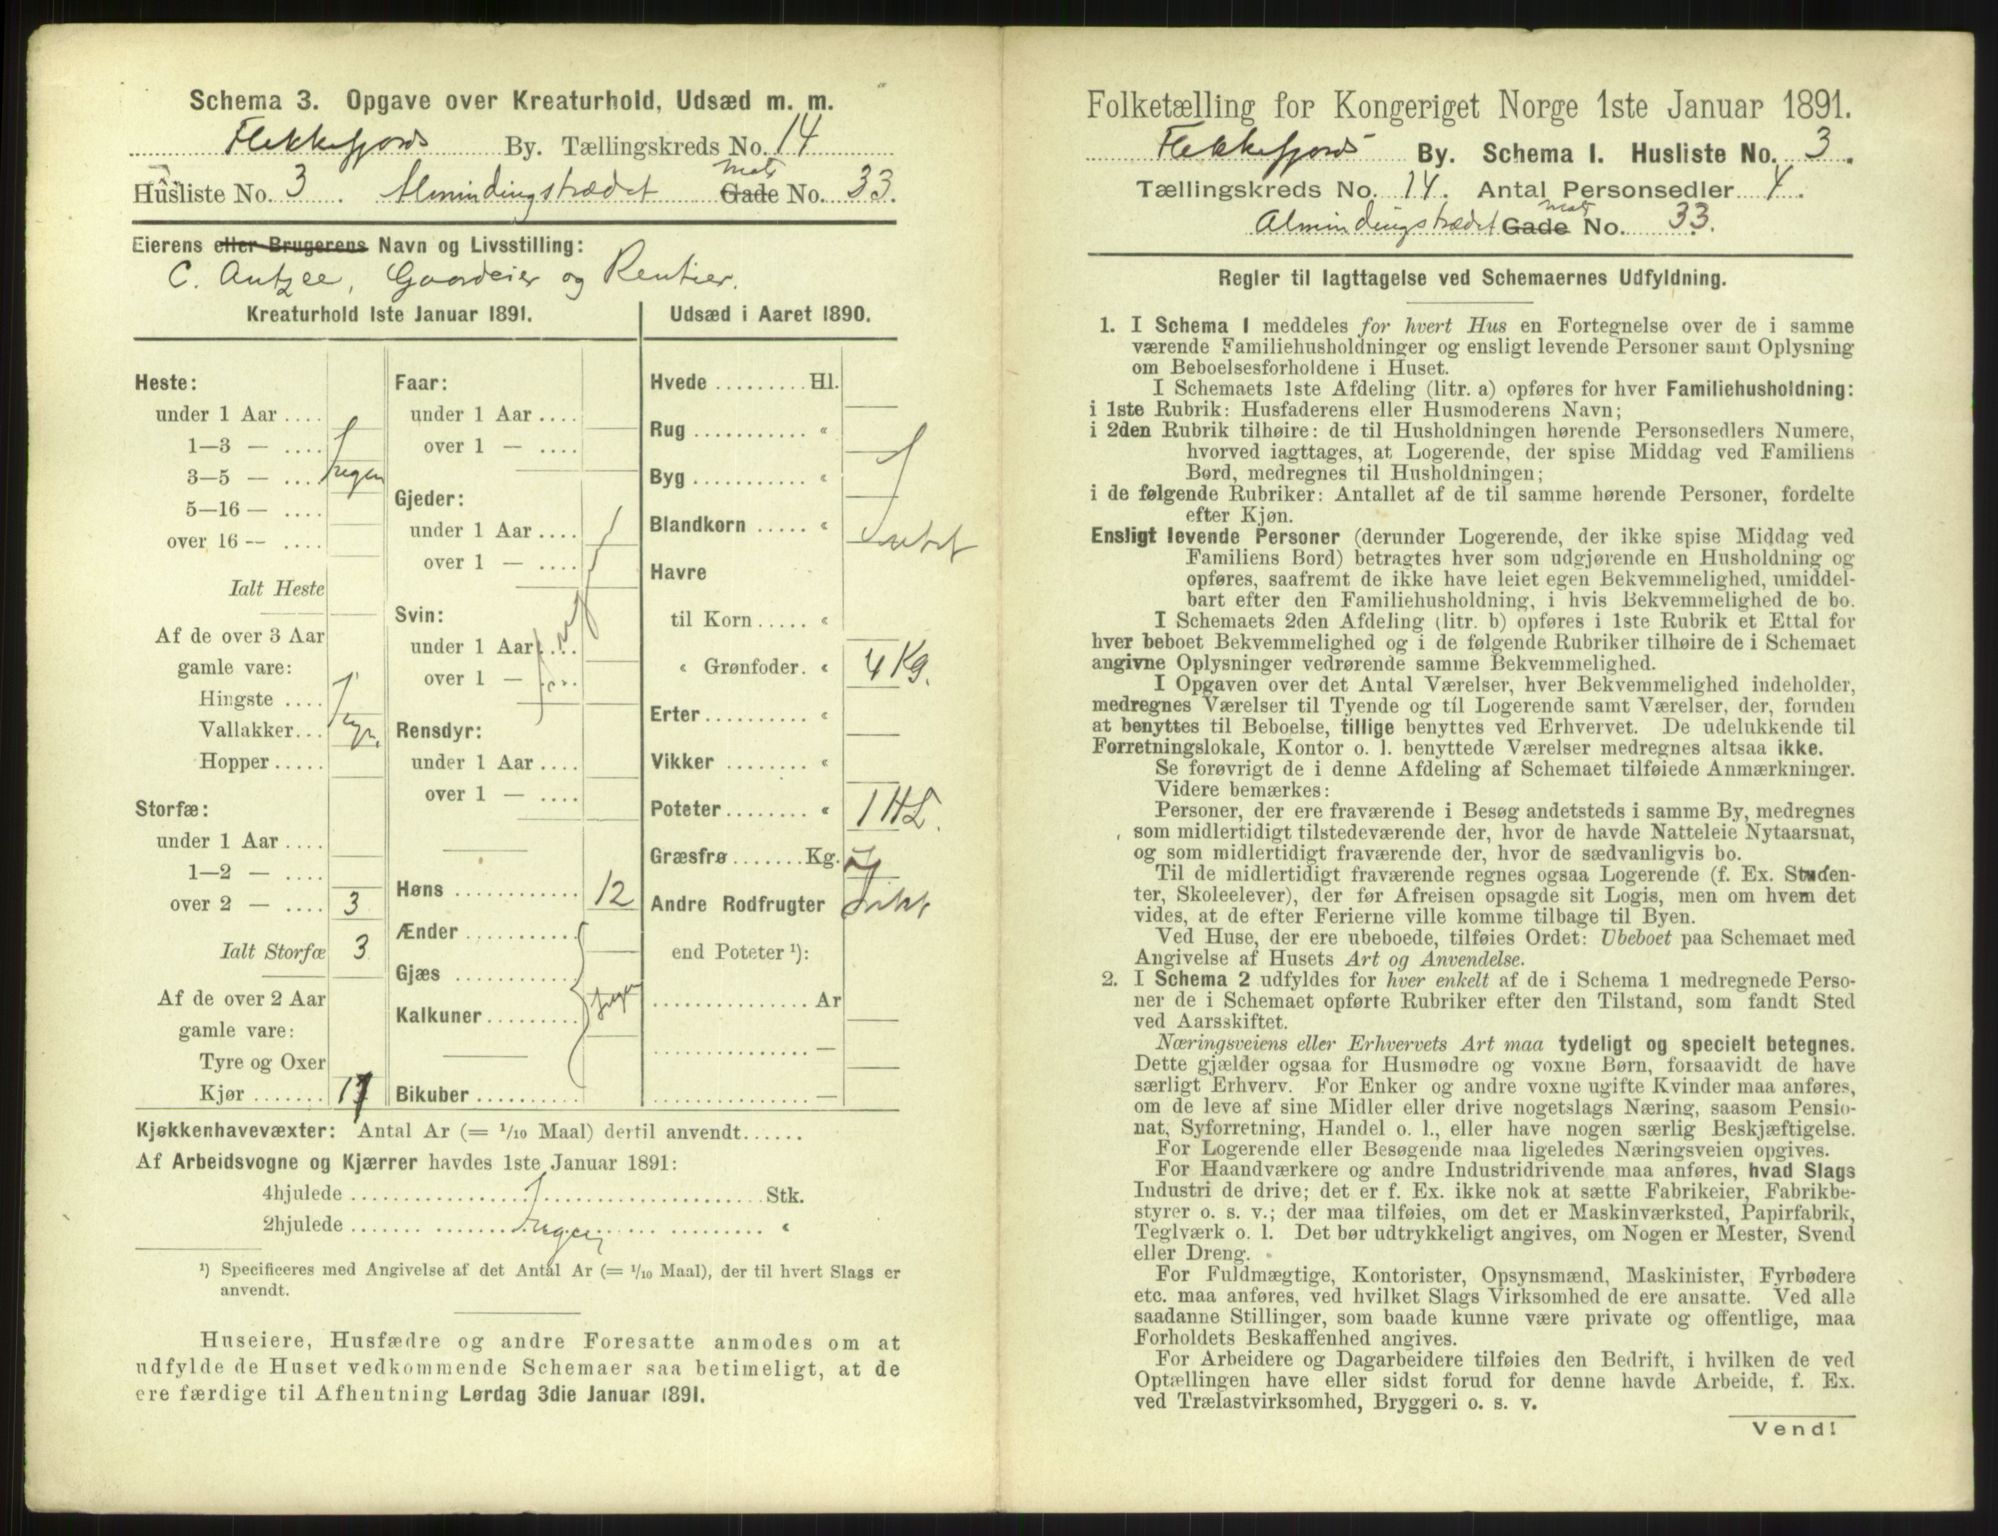 Schema 3. Opgave over Kreaturhold, Udsæd m. m.
Flekkefjords By. Tællingskreds No. 14
Husliste No. 3. Almindingstrædet Matr Gade No. 33.
Eierens eller Brugerens Navn og Livsstilling:
C. Antzee, Gaardeier og Rentier.
Kreaturhold 1ste Januar 1891.
Heste:
under 1 Aar ....
1—3 — ....
3—5 — ... Ingen
5—16 — ....
over 16 — ....
Ialt Heste
Af de over 3 Aar
gamle vare:
Hingste ....
Vallakker... Ingen
Hopper .....
Storfæ:
under 1 Aar ....
1—2 — ....
over 2 — .... 3
Ialt Storfæ 3
Af de over 2 Aar
gamle vare:
Tyre og Oxer
Kjør ....... 
Faar:
under 1 Aar ....
over 1 — ....
Gjeder:
under 1 Aar ....
over 1 — ....
Svin:
under 1 Aar ....
over 1 — ....
Rensdyr:
under 1 Aar ....
over 1 — ....
Høns ........... 12
Ænder ...........
Gjæs ............
Kalkuner......... Ingen
Bikuber ..........
Udsæd i Aaret 1890.
Hvede ......... Hl.
Rug ........... "
Byg ........... "
Blandkorn ..... " Intet
Havre
til Korn ..... "
" Grønfoder. " 4 Kg.
Erter.......... "
Vikker ........ "
Poteter........ " 1 HL.
Græsfrø ....... Kg.
Andre Rodfrugter
end Poteter ¹):
............... Ar
............... —
............... —
Kjøkkenhavevæxter: Antal Ar (= 1/10 Maal) dertil anvendt......
Af Arbeidsvogne og Kjærrer havdes 1ste Januar 1891:
4hjulede ........................................ Stk.
2hjulede ....... Ingen ....... "
¹) Specificeres med Angivelse af det Antal Ar (= 1/10 Maal), der til hvert Slags er
anvendt.
Huseiere, Husfædre og andre Foresatte anmodes om at
udfylde de Huset vedkommende Schemaer saa betimeligt, at de
ere færdige til Afhentning Lørdag 3die Januar 1891.
Folketælling for Kongeriget Norge 1ste Januar 1891.
Flekkefjords By. Schema 1. Husliste No. 3.
Tællingskreds No. 14. Antal Personsedler 4.
Almindingstrædet Matr Gade No. 33.
Regler til Iagttagelse ved Schemaernes Udfyldning.
1. I Schema 1 meddeles for hvert Hus en Fortegnelse over de i samme
værende Familiehusholdninger og ensligt levende Personer samt Oplysning
om Beboelsesforholdene i Huset.
I Schemaets 1ste Afdeling (litr. a) opføres for hver Familiehusholdning:
i 1ste Rubrik: Husfaderens eller Husmoderens Navn;
i 2den Rubrik tilhøire: de til Husholdningen hørende Personsedlers Numere,
hvorved iagttages, at Logerende, der spise Middag ved Familiens
Bord, medregnes til Husholdningen;
i de følgende Rubriker: Antallet af de til samme hørende Personer, fordelte
efter Kjøn.
Ensligt levende Personer (derunder Logerende, der ikke spise Middag ved
Familiens Bord) betragtes hver som udgjørende en Husholdning og
opføres, saafremt de ikke have leiet egen Bekvemmelighed, umiddel-
bart efter den Familiehusholdning, i hvis Bekvemmelighed de bo.
I Schemaets 2den Afdeling (litr. b) opføres i 1ste Rubrik et Ettal for
hver beboet Bekvemmelighed og i de følgende Rubriker tilhøire de i Schemaet
angivne Oplysninger vedrørende samme Bekvemmelighed.
I Opgaven over det Antal Værelser, hver Bekvemmelighed indeholder,
medregnes Værelser til Tyende og til Logerende samt Værelser, der, foruden
at benyttes til Beboelse, tillige benyttes ved Erhvervet. De udelukkende til
Forretningslokale, Kontor o. l. benyttede Værelser medregnes altsaa ikke.
Se forøvrigt de i denne Afdeling af Schemaet tilføiede Anmærkninger.
Videre bemærkes:
Personer, der ere fraværende i Besøg andetsteds i samme By, medregnes
som midlertidigt tilstedeværende der, hvor de havde Natteleie Nytaarsnat,
og som midlertidigt fraværende der, hvor de sædvanligvis bo.
Til de midlertidigt fraværende regnes ogsaa Logerende (f. Ex. Studen-
ter, Skoleelever), der før Afreisen opsagde sit Logis, men om hvem det
vides, at de efter Ferierne ville komme tilbage til Byen.
Ved Huse, der ere ubeboede, tilføies Ordet: Ubeboet paa Schemaet med
Angivelse af Husets Art og Anvendelse.
2. I Schema 2 udfyldes for hver enkelt af de i Schema 1 medregnede Perso-
ner de i Schemaet opførte Rubriker efter den Tilstand, som fandt Sted
ved Aarsskiftet.
Næringsveiens eller Erhvervets Art maa tydeligt og specielt betegnes.
Dette gjælder ogsaa for Husmødre og voxne Børn, forsaavidt de have
særligt Erhverv. For Enker og andre voxne ugifte Kvinder maa anføres,
om de leve af sine Midler eller drive nogetslags Næring, saasom Pensio-
nat, Syforretning, Handel o. l., eller have nogen særlig Beskjæftigelse.
For Logerende eller Besøgende maa ligeledes Næringsveien opgives.
For Haandværkere og andre Industridrivende maa anføres, hvad Slags
Industri de drive; det er f. Ex. ikke nok at sætte Fabrikeier, Fabrikbe-
styrer o. s. v.; der maa tilføies, om det er Maskinværksted, Papirfabrik,
Teglværk o. l. Det bør udtrykkeligt angives, om Nogen er Mester, Svend
eller Dreng.
For Fuldmægtige, Kontorister, Opsynsmænd, Maskinister, Fyrbødere
etc. maa anføres, ved hvilket Slags Virksomhed de ere ansatte. Ved alle
saadanne Stillinger, som baade kunne være private og offentlige, maa
Forholdets Beskaffenhed angives.
For Arbeidere og Dagarbeidere tilføies den Bedrift, i hvilken de ved
Optællingen have eller sidst forud for denne havde Arbeide, f. Ex.
ved Trælastvirksomhed, Bryggeri o. s. v.
Vend!